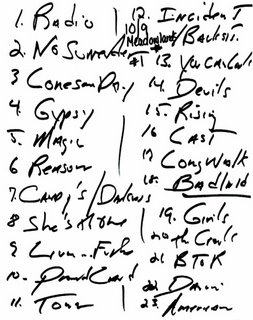 1. Radio
2. No Surrender
3 Lonesome Day
4 Gypsy
5. Magic
6 Reason
7. Candy's / Darkness
8 She's the One
9 Livin..Futur
10. Promised Land
11. Town
10/9
Meadowlands
#1
12. Incident
/Backsts.
13. You Can Look
14. Devils
15. Rising
16 LAST
17 Long Walk
18. Badland
19. Girls
20
21 BTR
22 Dancin
23. American